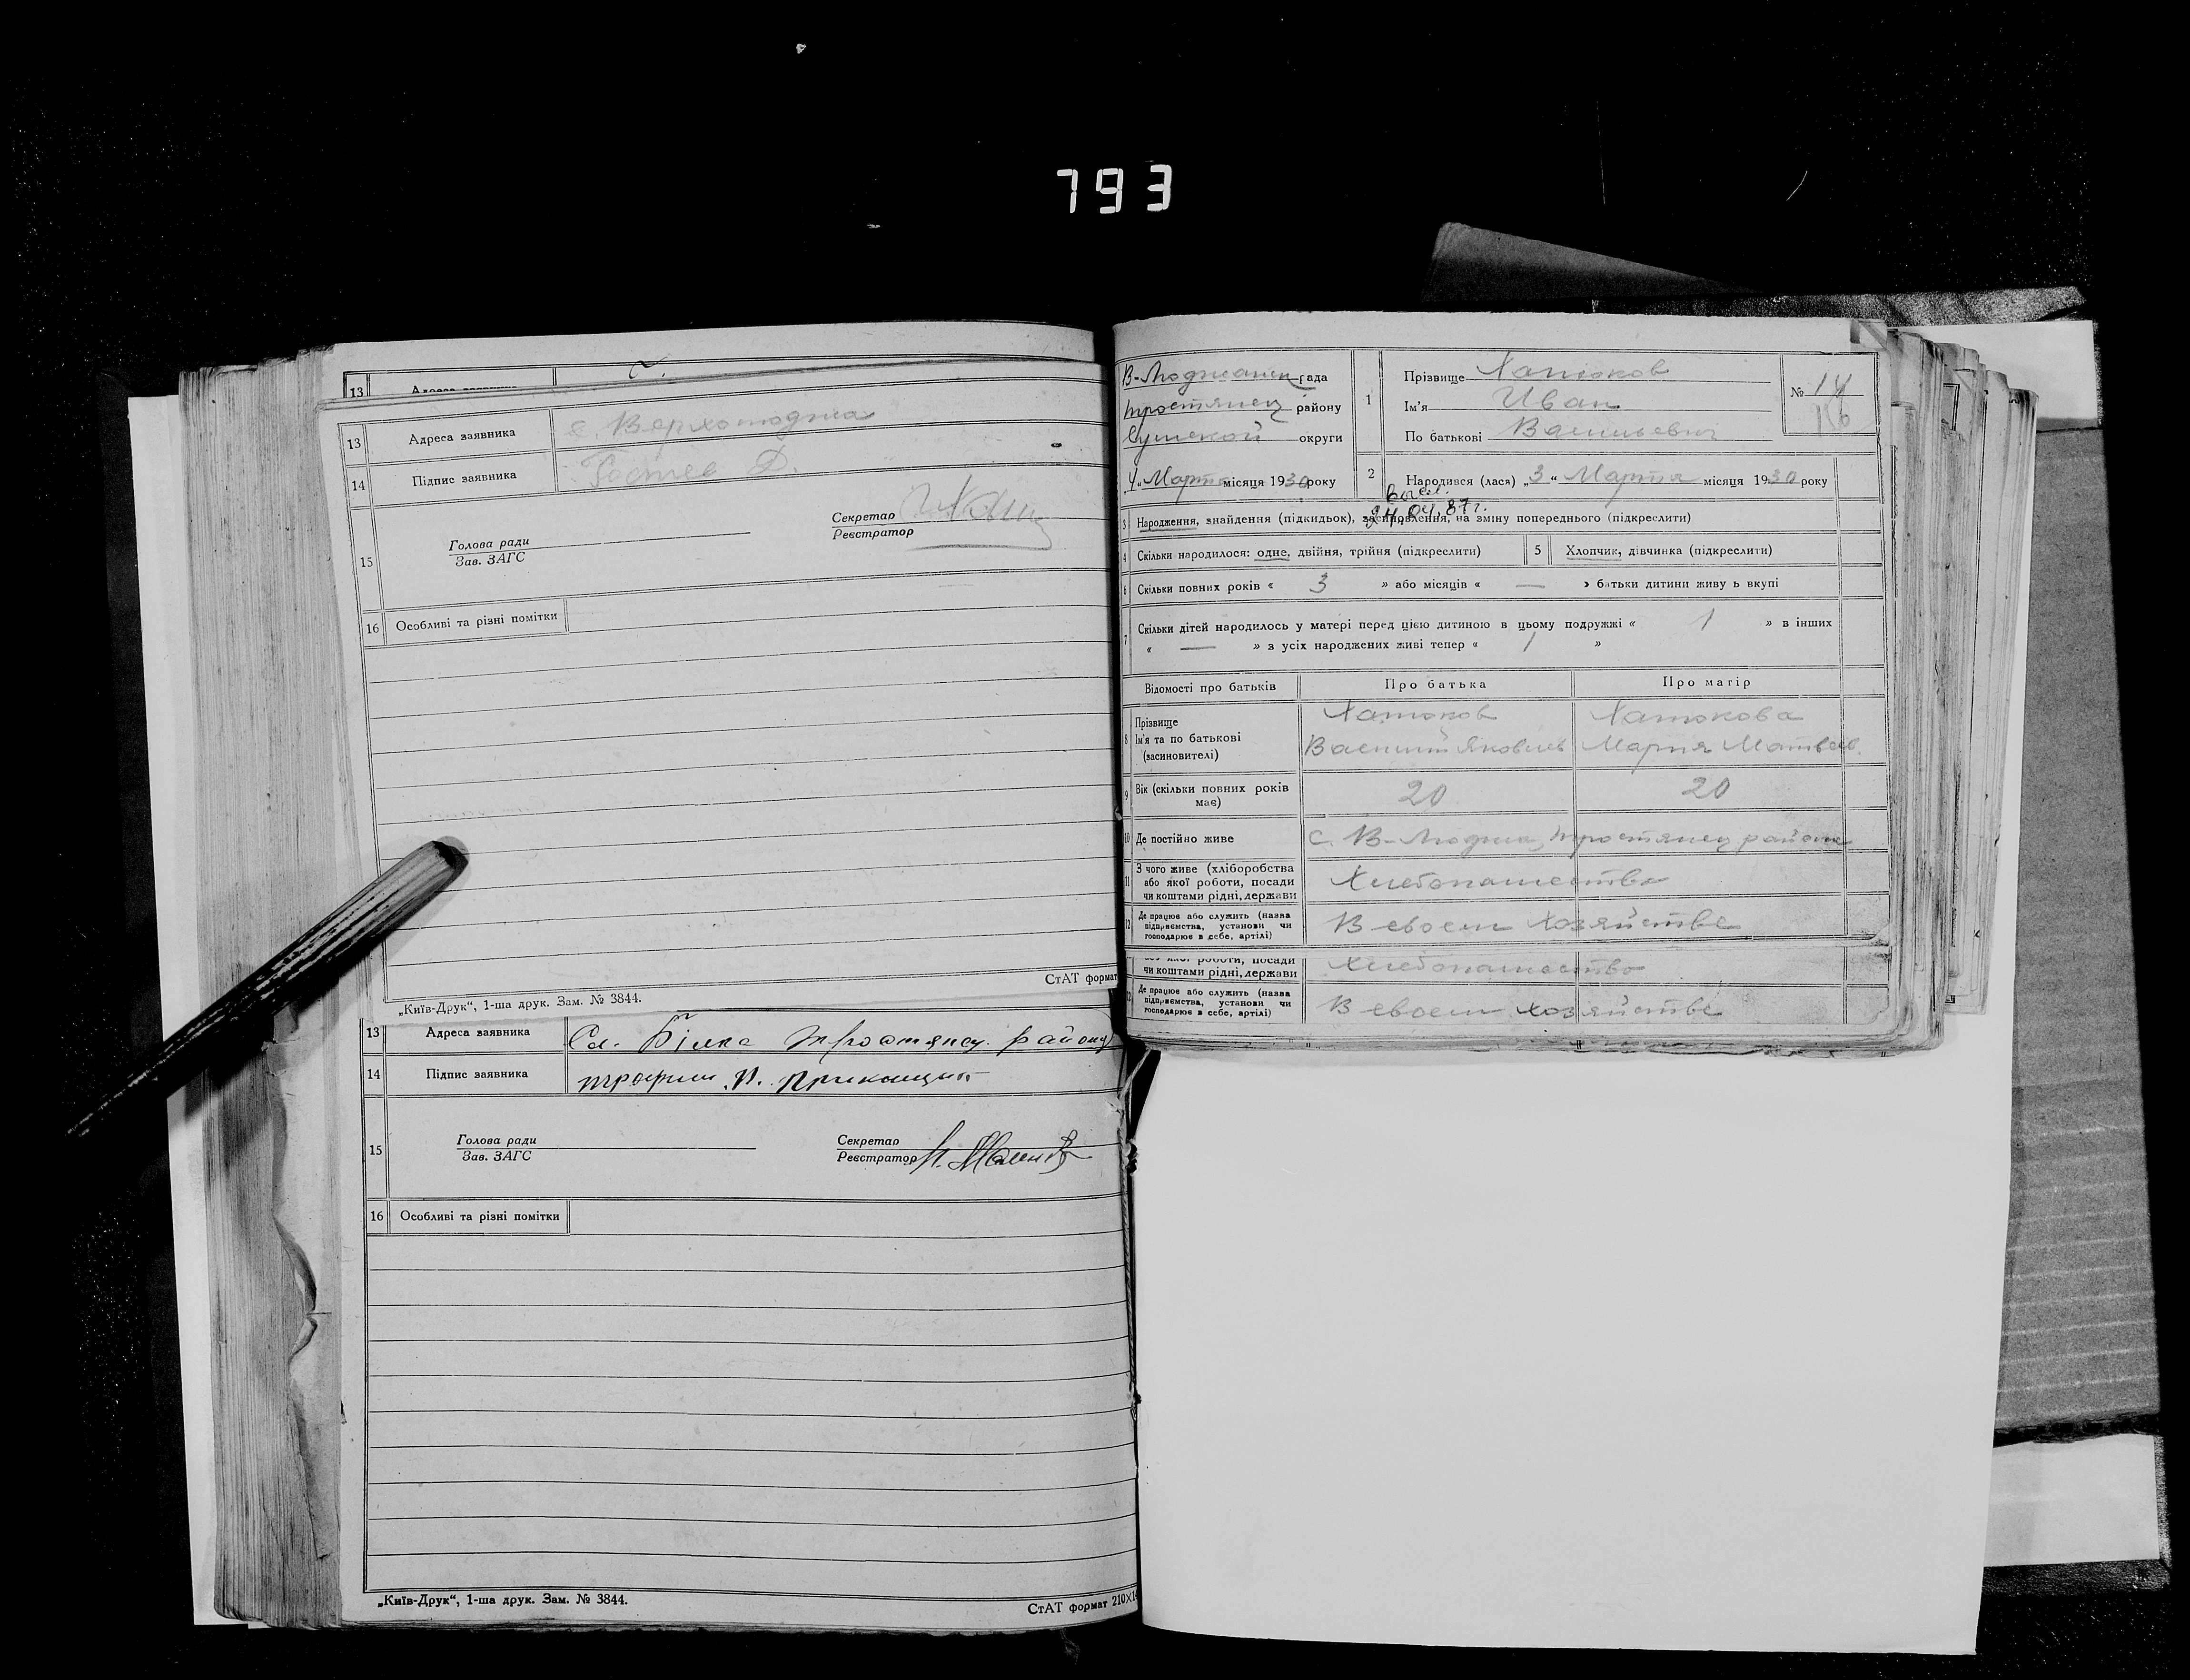 793
13 Адреса заявника
13 Адреса заявника с. Верхолюджа
14 Підпис заявника Гостев Д.
15 Голова ради
Зав. ЗАГС
Секретар
Реєстратор
16 Особливі та різні помітки
„Київ-Друк“, 1-ша друк. Зам. № 3844.
СтАТ формат
13 Адреса заявника Сл. Білка Тростянец. району
14 Підпис заявника Трофим П.
15 Голова ради
Зав. ЗАГС
Секретар
Реєстратор
16 Особливі та різні помітки
„Київ-Друк“, 1-ша друк. Зам. № 3844.
СтАТ формат 210×1
В-Люджанск рада
Тростянец району
Сумской округи
4 „ Марта місяця 1930 року
1 Прізвище Хатюков
Ім'я Иван
По батькові Васильевич
№ 14
16
2 Народився (лася) „3“ Марта місяця 1930 року
24.04.87 г.
3 Народження, знайдення (підкидьок), засиновлення, на зміну попереднього (підкреслити)
4 Скільки народилося: одне, двійня, трійня (підкреслити) 5 Хлопчик, дівчинка (підкреслити)
6 Скільки повних років « 3 » або місяців « — » батьки дитини живу ь вкупі
7 Скільки дітей народилось у матері перед цією дитиною в цьому подружжі « 1 » в інших
« — » з усіх народжених живі тепер « 1 »
Відомості про батьків Про батька Про матір
8 Прізвище Хатюков Хатюкова
Ім'я та по батькові Василий Яковлев Мария Матвеев.
(засиновителі)
9 Вік (скільки повних років має) 20 20
10 Де постійно живе с. В-Люджа, Тростянец района
11 З чого живе (хліборобства
або якої роботи, посади
чи коштами рідні, держави Хлебопашество
12 Де працює або служить (назва
підприємства, установи чи
господарює в себе, артілі) В своем хозяйстве
або якої роботи, посади
чи коштами рідні, держави Хлебопашество
12 Де працює або служить (назва
підприємства, установи чи
господарює в себе, артілі) В своем хозяйстве